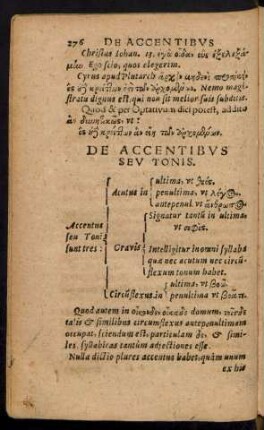 276 DE ACCENTIBVS
Christus Iohan. 13. ἐγὼ οἶδα οὓς ἐξελεξά-
μην. Ego scio, quos elegerim.
Cyrus apud Plutarch. ἄρχειν μηδενὶ
κρείττων τῶν ἀρχομένων. Nemo magi-
stratu dignus est, qui non sit melior suis subditis.
Quod & per Optativum dici potest, addito
ἂν vt:
κρείττων ἂν εἴη τῶν ἀρχομένων.
DE ACCENTIBVS
SEV TONIS.
Accentus
seu Toni
sunt tres:
Acutus in
ultima, vt
penultima, vt
antepenul. vt ἄνθρωπος.
Gravis
Signatur tantũ in ultima,
vt
Intelligitur in omni syllaba
quæ nec acutum nec circũ-
flexum tonum habet.
Circũflexus in
ultima, vt
penultima vt
Quod autem in domum,
& similibus circumflexus antepenultimam
occupat, sciendum est, particulam δε, & simi-
les, syllabicas tantùm adjectiones esse.
Nulla dictio plures accentus habet, quàm unum
ex his